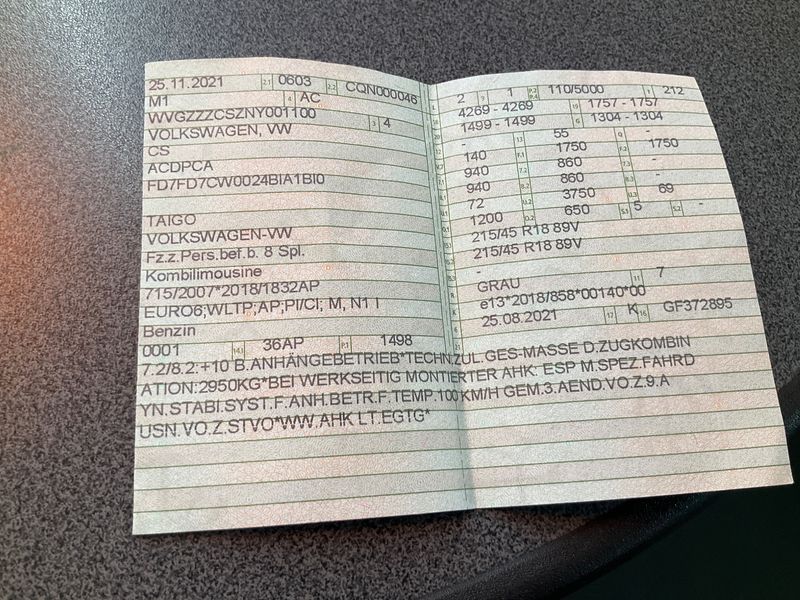 25.11.2021 2.1 0603 2.2 CQN000046
M1 4 AC
WVGZZZCSZNY001100 3 4
VOLKSWAGEN, VW
CS
ACDPCA
FD7FD7CW0024BIA1BI0
TAIGO
VOLKSWAGEN-VW
Fz.z.Pers.bef.b. 8 Spl.
Kombilimousine
715/2007*2018/1832AP
EURO6;WLTP;AP;PI/CI; M, N1 I
Benzin
0001 14.1 36AP P.1 1498
2 1 110/5000 212
4269 - 4269 19 1757 - 1757
1499 - 1499 G 1304 - 1304
- 13 55 Q -
140 F.1 1750 1750
940 7.2 860 7.3 -
940 8.2 860 8.3 -
72 U.2 3750 U.3 69
1200 O.2 650 S.1 5 S.2 -
215/45 R18 89V
215/45 R18 89V
-
GRAU 11 7
e13*2018/858*00140*00
25.08.2021 17 K 16 GF372895
7.2/8.2:+10 B.ANHÄNGEBETRIEB*TECHN.ZUL.GES-MASSE D.ZUGKOMBIN
ATION:2950KG*BEI WERKSEITIG MONTIERTER AHK: ESP M.SPEZ.FAHRD
YN.STABI.SYST.F.ANH.BETR.F.TEMP.100 KM/H GEM.3.AEND.VO.Z.9.A
USN.VO.Z.STVO*WW.AHK LT.EGTG*